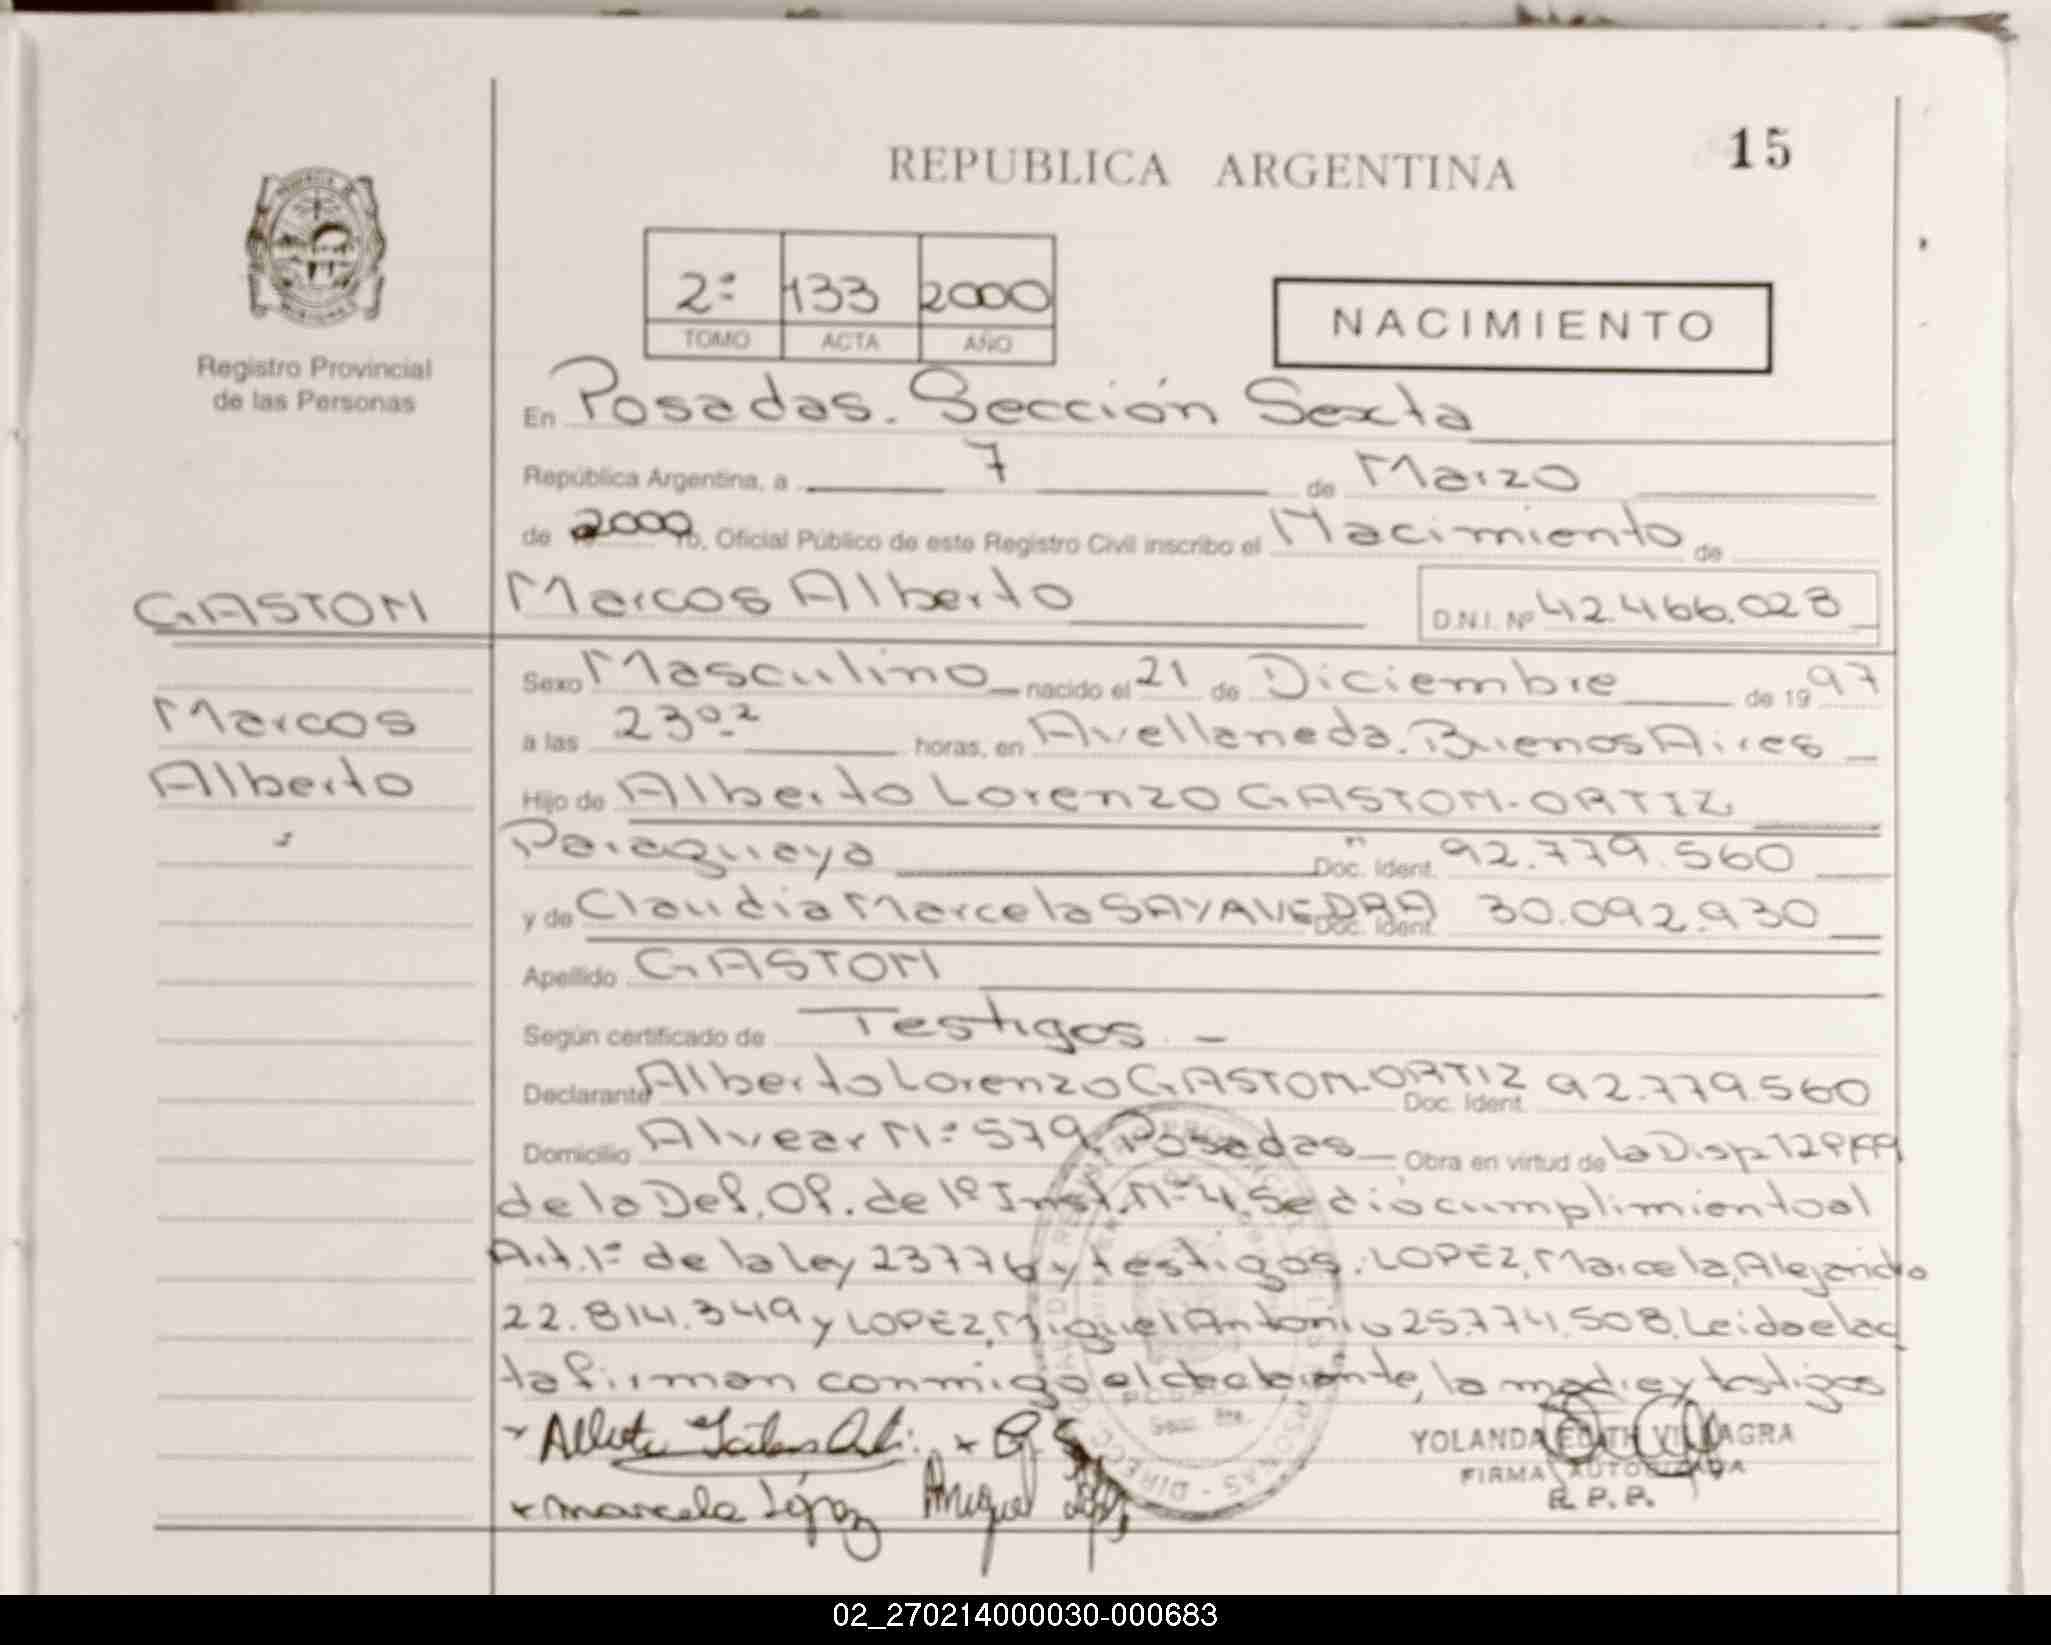 15
REPUBLICA ARGENTINA
2º 133 2000
TOMO ACTA AÑO
NACIMIENTO
Registro Provincial
de las Personas
En Posadas. Sección Sexta
República Argentina, a 7 de Marzo
de 2000 Yo, Oficial Público de este Registro Civil inscribo el Nacimiento de
GASTON Marcos Alberto D.N.I. Nº 42.466.028
Sexo Masculino nacido el 21 de Diciembre de 1997
Marcos
a las 23 horas, en Avellaneda. Buenos Aires
Alberto
Hijo de Alberto Lorenzo GASTON-ORTIZ
Paraguayo Doc. Ident. 92.779.560
y de Claudia Marcela SAYAVEDRA Doc. Ident. 30.092.930
Apellido GASTON
Según certificado de Testigos. -
Declarante Alberto Lorenzo GASTON-ORTIZ Doc. Ident. 92.779.560
Domicilio Alvear Nº 579. Posadas Obra en virtud de la Disp 129/99
de la Def. Of. de 1º Inst. Nº 4. Se dió cumplimiento al
Art. 1º de la ley 23776 y testigos: LOPEZ, Marcela, Alejandra
22.814.349 y LOPEZ, Miguel Antonio 25.774.508. Leido el ac
ta firman conmigo el declarante, la madre y testigos
Marcela López Miguel
YOLANDA EDITH VILLAGRA
FIRMA AUTORIZADA
R. P. P.
02_270214000030-000683